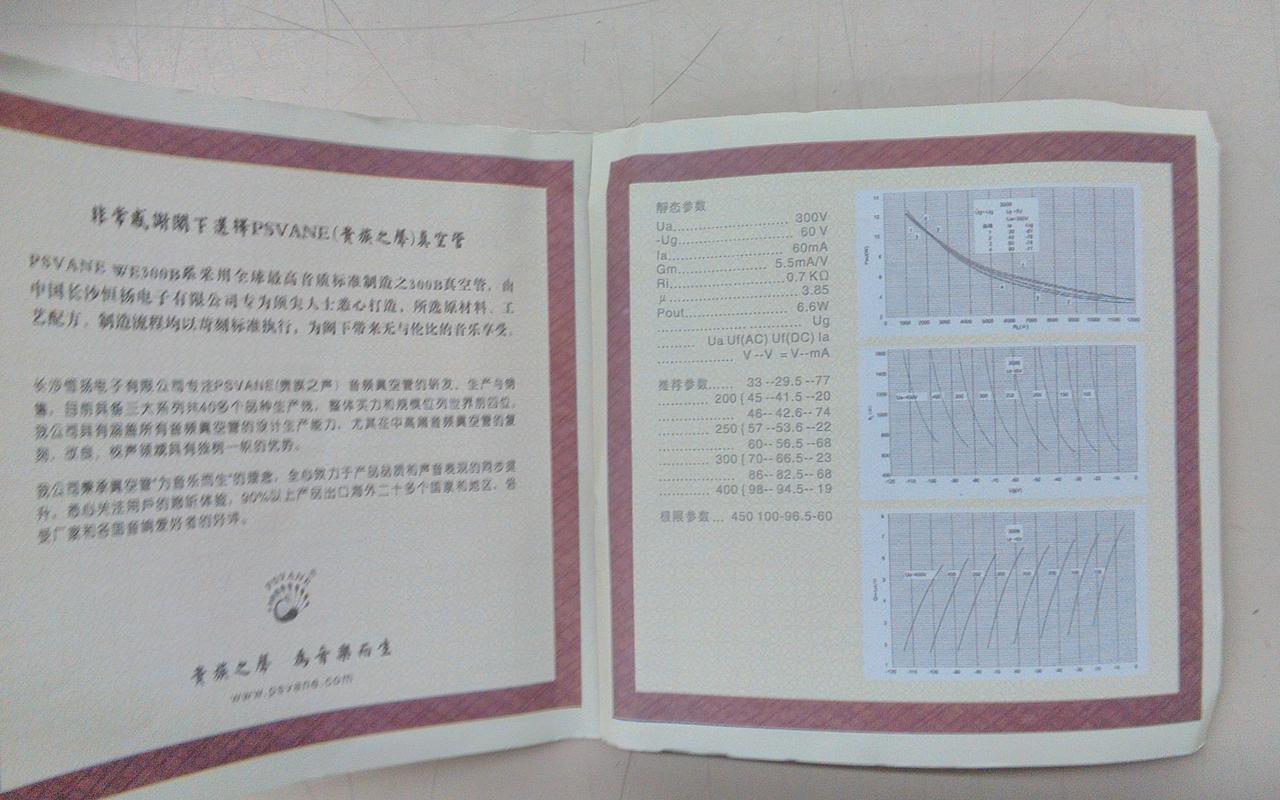 非常感謝閣下選擇PSVANE(貴族之聲)真空管
PSVANE WE300B系采用全球最高音质标准制造之300B真空管，由
中国长沙恒扬电子有限公司专为顶尖人士悉心打造，所选原材料、工
艺配方、制造流程均以苛刻标准执行，为阁下带来无与伦比的音乐享受。
长沙恒扬电子有限公司专注PSVANE(贵族之声）音频真空管的研发、生产与销
售，目前具备三大系列共40多个品种生产线，整体实力和规模位列世界前四位。
我公司具有涵盖所有音频真空管的设计生产能力，尤其在中高端音频真空管的复
刻、改良、校声领域具有独树一帜的优势。
我公司秉承真空管"为音乐而生"的理念，全心致力于产品品质和声音表现的同步提
升，悉心关注用户的聆听体验，90%以上产品出口海外二十多个国家和地区，倍
受厂家和各国音响爱好者的好评。
PSVANE®
貴族之聲 為音樂而生
www.psvane.com
静态参数
Ua............ 300V
-Ug............ 60 V
Ia............ 60mA
Gm............ 5.5mA/V
Ri............ 0.7 KΩ
μ............ 3.85
Pout............ 6.6W
............ Ug
....... Ua Uf(AC) Uf(DC) Ia
....... V --V = V--mA
推荐参数...... 33 --29.5 --77
....... 200 { 45 --41.5 --20
....... 46-- 42.6-- 74
....... 250 { 57 --53.6 --22
....... 60-- 56.5 --68
....... 300 { 70-- 66.5-- 23
....... 86-- 82.5-- 68
....... 400 { 98-- 94.5-- 19
极限参数... 450 100-96.5-60